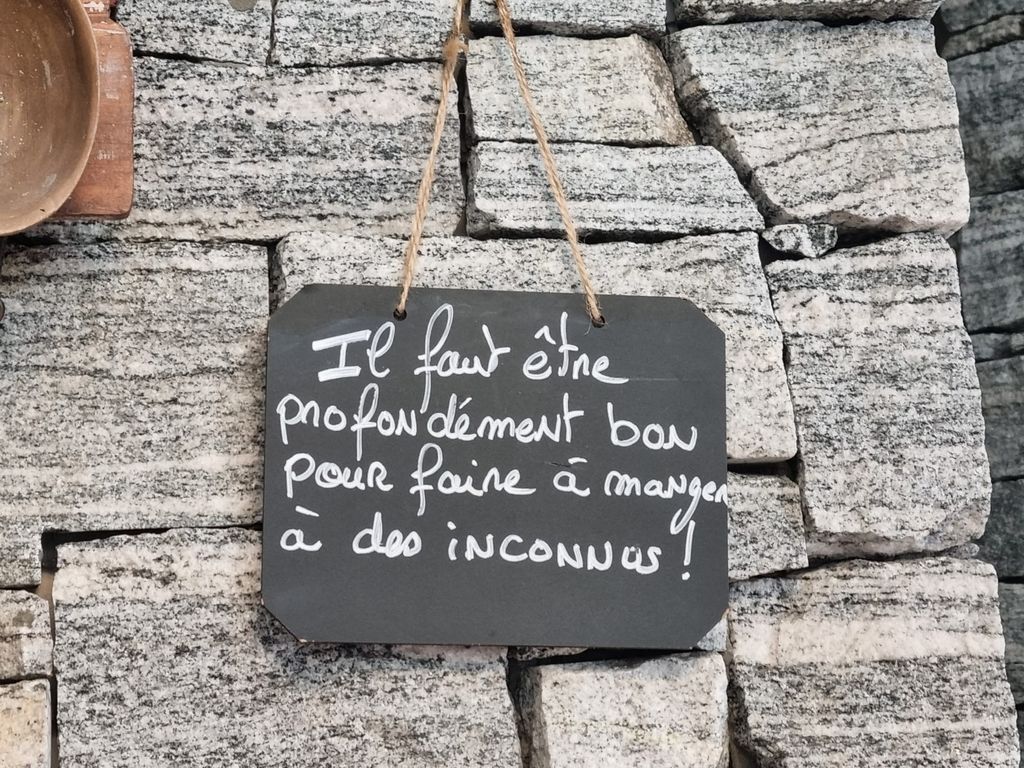 Il faut être
profondément bon
pour faire à manger
à des inconnus !